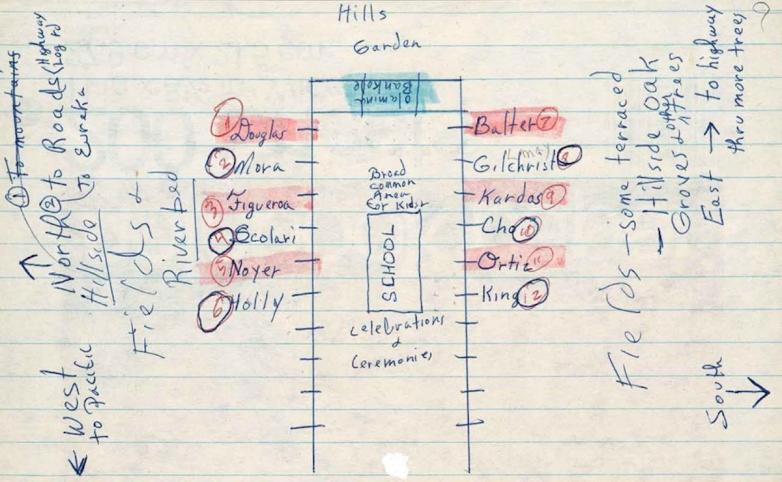 Hills
Garden
Olamina
Bankole
① Douglas
② Mora
③ Figueroa
④ Scolari
⑤ Noyer
⑥ Holly
Balter ⑦
Gilchrist ⑧
Kardos ⑨
Cho ⑩
Ortiz ⑪
King ⑫
Broad
common
Area
for Kids
SCHOOL
Celebrations
&
Ceremonies
① To mountains
North ② to Roads (Highway
Hillside
(To Eureka
Fields &
Riverbed
West
to Pacific
Fields — some terraced
— Hillside Oak
Groves & other trees
East → to highway
thru more trees
South